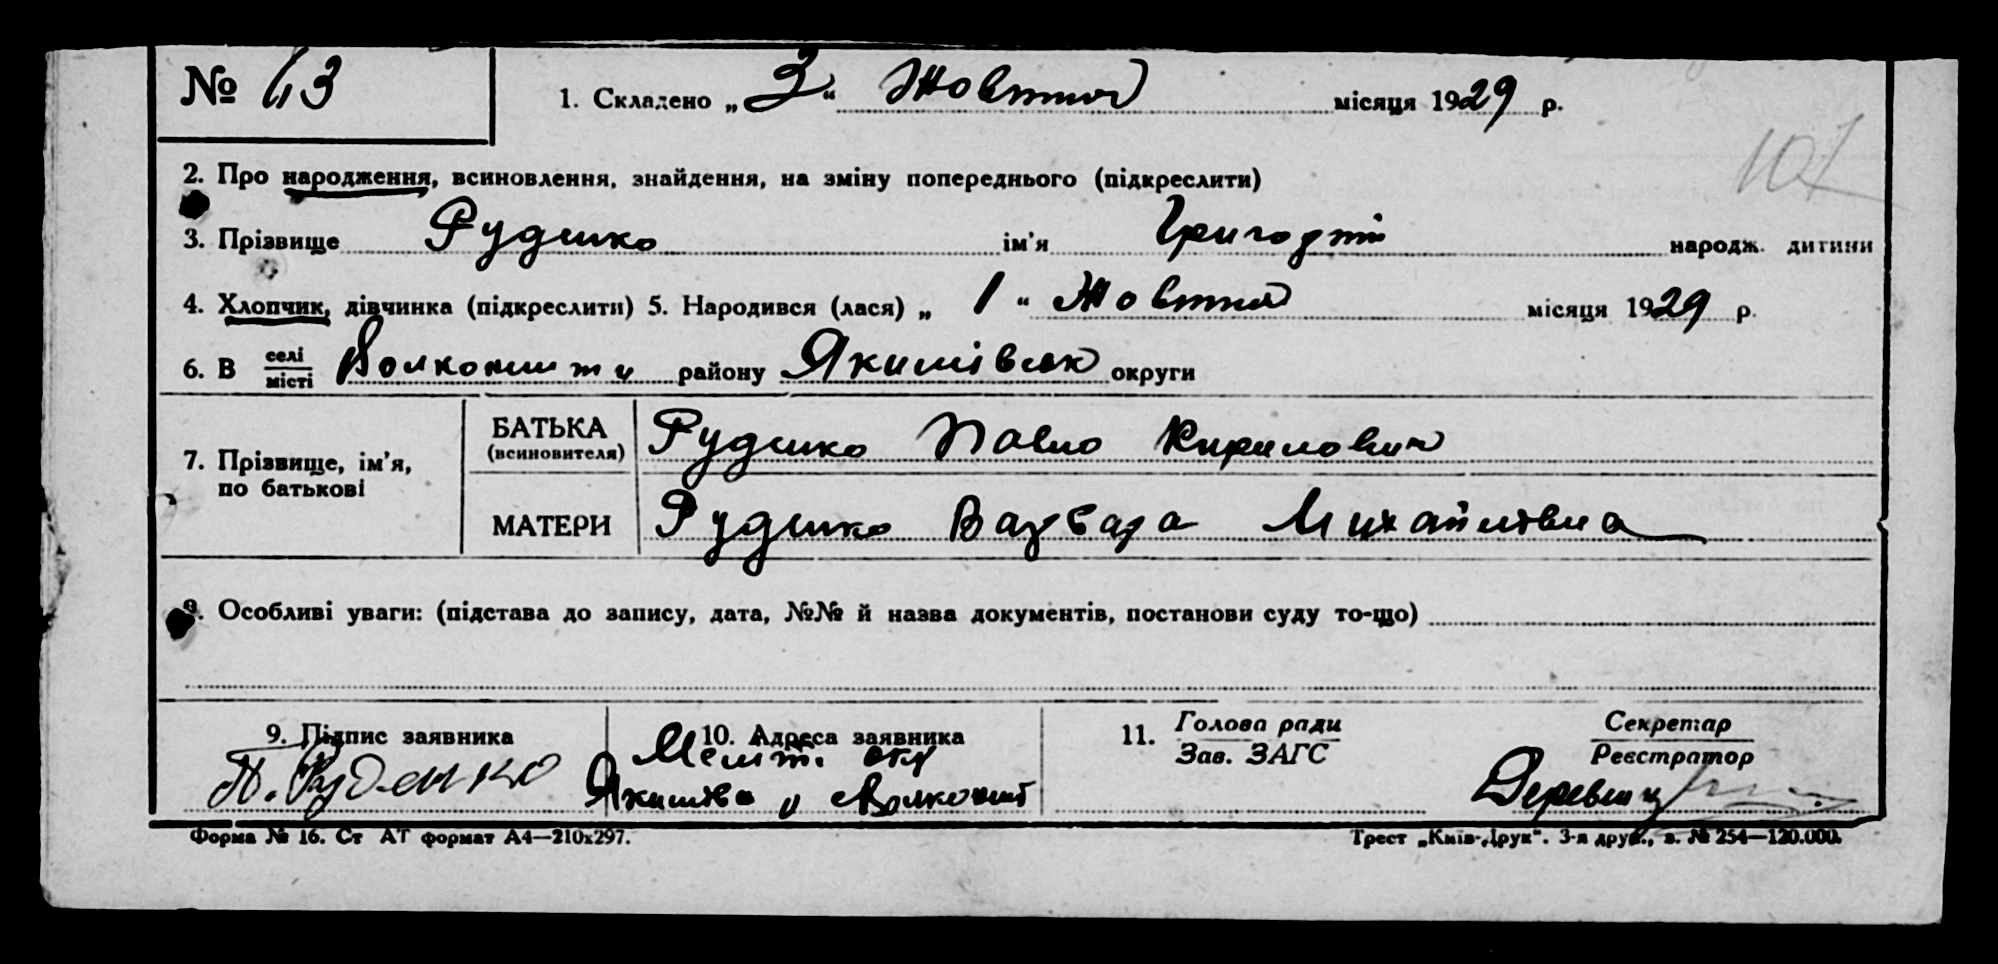 № 43 1. Складено „ 3 “ Жовтня місяця 1929 р.
107
2. Про народження, всиновлення, знайдення, на зміну попереднього (підкреслити)
3. Прізвище Руденко ім'я Григорій народж. дитини
4. Хлопчик, дівчинка (підкреслити) 5. Народився (лася) „ 1 “ Жовтня місяця 1929 р.
6. В селі/місті району Якимівськ округи
7. Прізвище, ім'я, по батькові
БАТЬКА (всиновителя) Руденко Павло Кирилович
МАТЕРИ Руденко Варвара Михайлівна
8. Особливі уваги: (підстава до запису, дата, №№ й назва документів, постанови суду то-що)
9. Підпис заявника 10. Адреса заявника 11. Голова ради Секретар
Зав. ЗАГС Реєстратор
П. Руденко Меліт. окр
Якимівка
Форма № 16. Ст АТ формат А4—210х297. Трест „Київ-Друк“. 3-я друк., з. № 254—120.000.